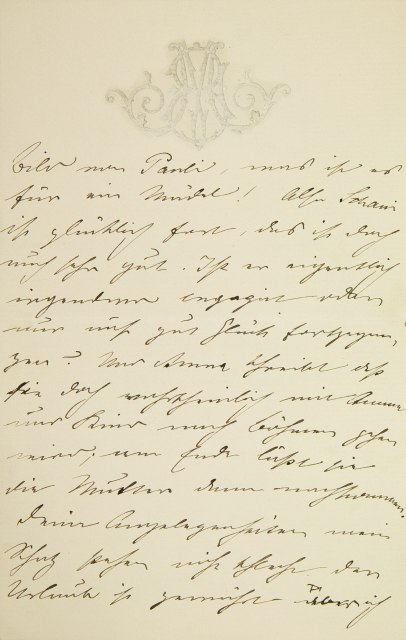 Bild von Pauli, was ist es
für ein Mädel! Also Schani
ist glücklich fort, das ist doch
auch sehr gut. Ist er eigentlich
irgendwo engagirt oder
nur auf gut Glück fortgegan,
gen? Und Anna schreibt daß
sie doch wahrscheinlich mit Anna
und Kind nach Böhmen gehen
wird; am Ende läßt sie
die Mutter dann nachkommen.
Deine Angelegenheiten mein
Schatz stehen nicht schlecht. der
Urlaub ist gewährt über ich